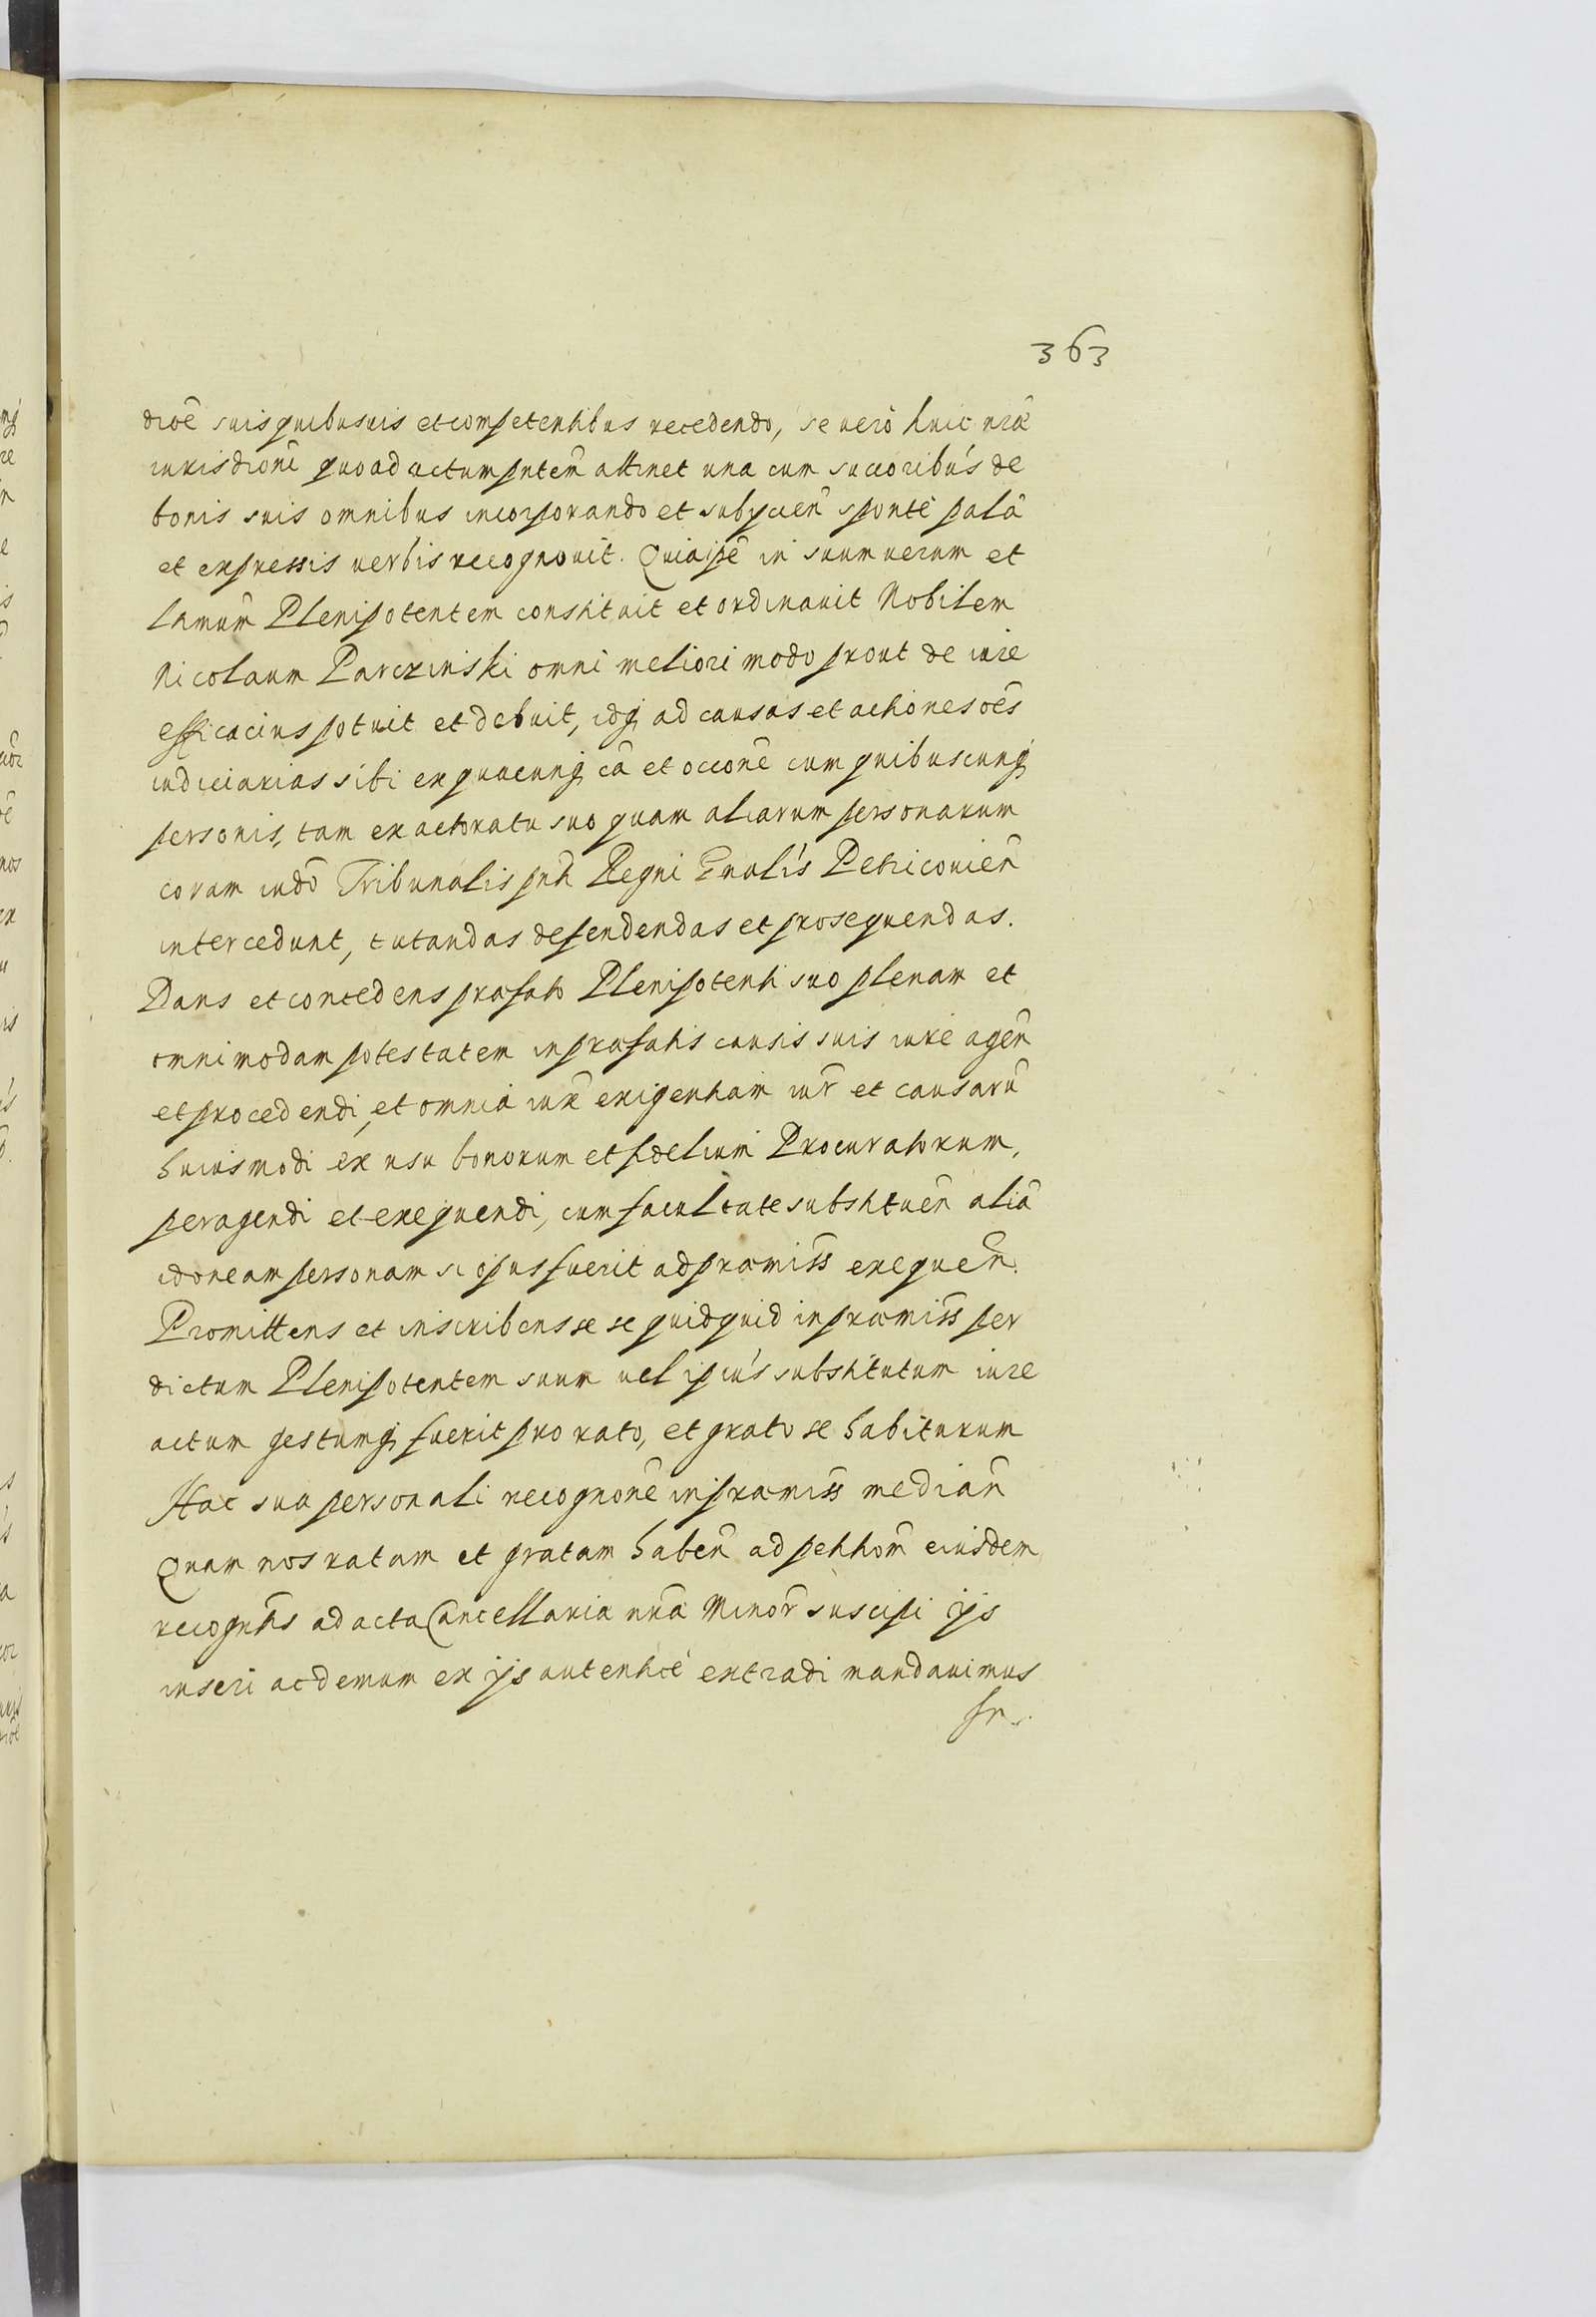 363
dioẽ suis quibusuis et competentibus recedendo, se uero huic nrã
iurisdioni quoad actum pntem̃ attinet una cum succoribus de
bonis suis omnibus incorporando et subycien̄ sponte palã
et expressis uerbis recognouit. Quia ipẽ in suum uerum et
ltmum̃ Plenipotentem constituit et ordinauit Nobilem
Nicolaum Parczinski omni meliori modo prout de iure
efficacius potuit et debuit, idq̨ ad causas et actiones oẽs
iudiciarias sibi ex quacunq̨ cã et occone cum quibuscunq̨
personis, tam ex actoratu suo quam aliarum personarum
coram iudõ Tribunalis pnti Regni Gnalis Petricouien̄
intercedunt, tutandas defendendas et prosequendas.
Dans et concedens præfato Plenipotenti suo plenam et
omnimodam potestatem in præfatis causis suis iure agen̄
et procedendi, et omnia iux̃ exigentiam iur̃ et causarũ
huiusmodi ex usu bonorum et fidelium Procuratorum,
peragendi et exequendi, cum facultate substituen̄ aliã
idoneam personam si opus fuerit ad præmiss̃ exequen̄.
Promittens et inscribens se se quidquid in præmiss̃ per
dictum Plenipotentem suum uel ipius substitutum iure
actum gestumq̨ fuerit pro rato, et grato se habiturum
Hac sua personali recognone in præmiss̃ median̄
Quam nos ratam et gratam haben̄ ad petitiom̃ eiusdem
recogntis ad acta Cancellaria nrã Minor̃ suscipi ijs
inseri ac demum ex ijs autentice extradi mandauimus